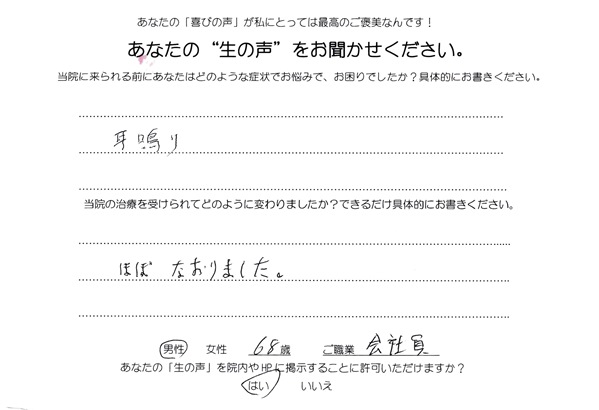 あなたの「喜びの声」が私にとっては最高のご褒美なんです！
あなたの“生の声”をお聞かせください。
当院に来られる前にあなたはどのような症状でお悩みで、お困りでしたか？具体的にお書きください。
耳鳴り
当院の治療を受けられてどのように変わりましたか？できるだけ具体的にお書きください。
ほぼ なおりました。
男性 女性 68歳 ご職業 会社員
あなたの「生の声」を院内やHPに掲示することに許可いただけますか？
はい いいえ